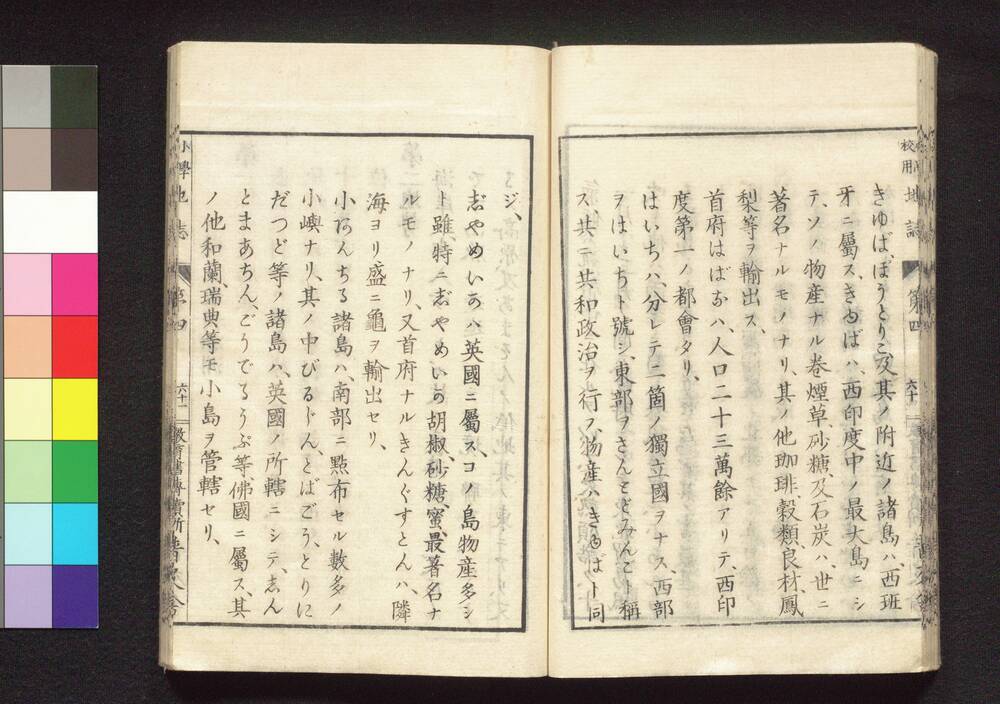 きゆば、ぽうとりこ及其ノ附近ノ諸島ハ、西班
牙ニ屬ス、きゆばハ、西印度中ノ最大島ニシ
テ、ソノ物産ナル卷煙草、砂糖、及石炭ハ、世ニ
著名ナルモノナリ、其ノ他珈琲、穀類、良材、鳳
梨等ヲ輸出ス、
首府はばなハ、人口二十三萬餘アリテ、西印
度第一ノ都會タリ、
はいちハ、分レテ二箇ノ獨立國ヲナス、西部
ヲはいちト號シ、東部ヲさんとどみんごト稱
ス、共ニ共和政治ヲ行フ、物産ハ、きゆばト同
ジ、
志やめいかハ英國ニ屬ス、コノ島物産多シ
ト雖、特ニ志やめいかの胡椒、砂糖、蜜、最著名ナ
ルモノナリ、又首府ナルきんぐすとんハ、隣
海ヨリ盛ニ龜ヲ輸出セリ、
小あんちる諸島ハ、南部ニ點布セル數多ノ
小嶼ナリ、其ノ中びるじん、とばごう、とりに
だつど等ノ諸島ハ、英國ノ所轄ニシテ、志ん
とまあちん、ごうでるうぷ等、佛國ニ屬ス、其
ノ他和蘭、瑞典等モ、小島ヲ管轄セリ、
校用 地誌 第四 六十
小學地志 第四 六十一